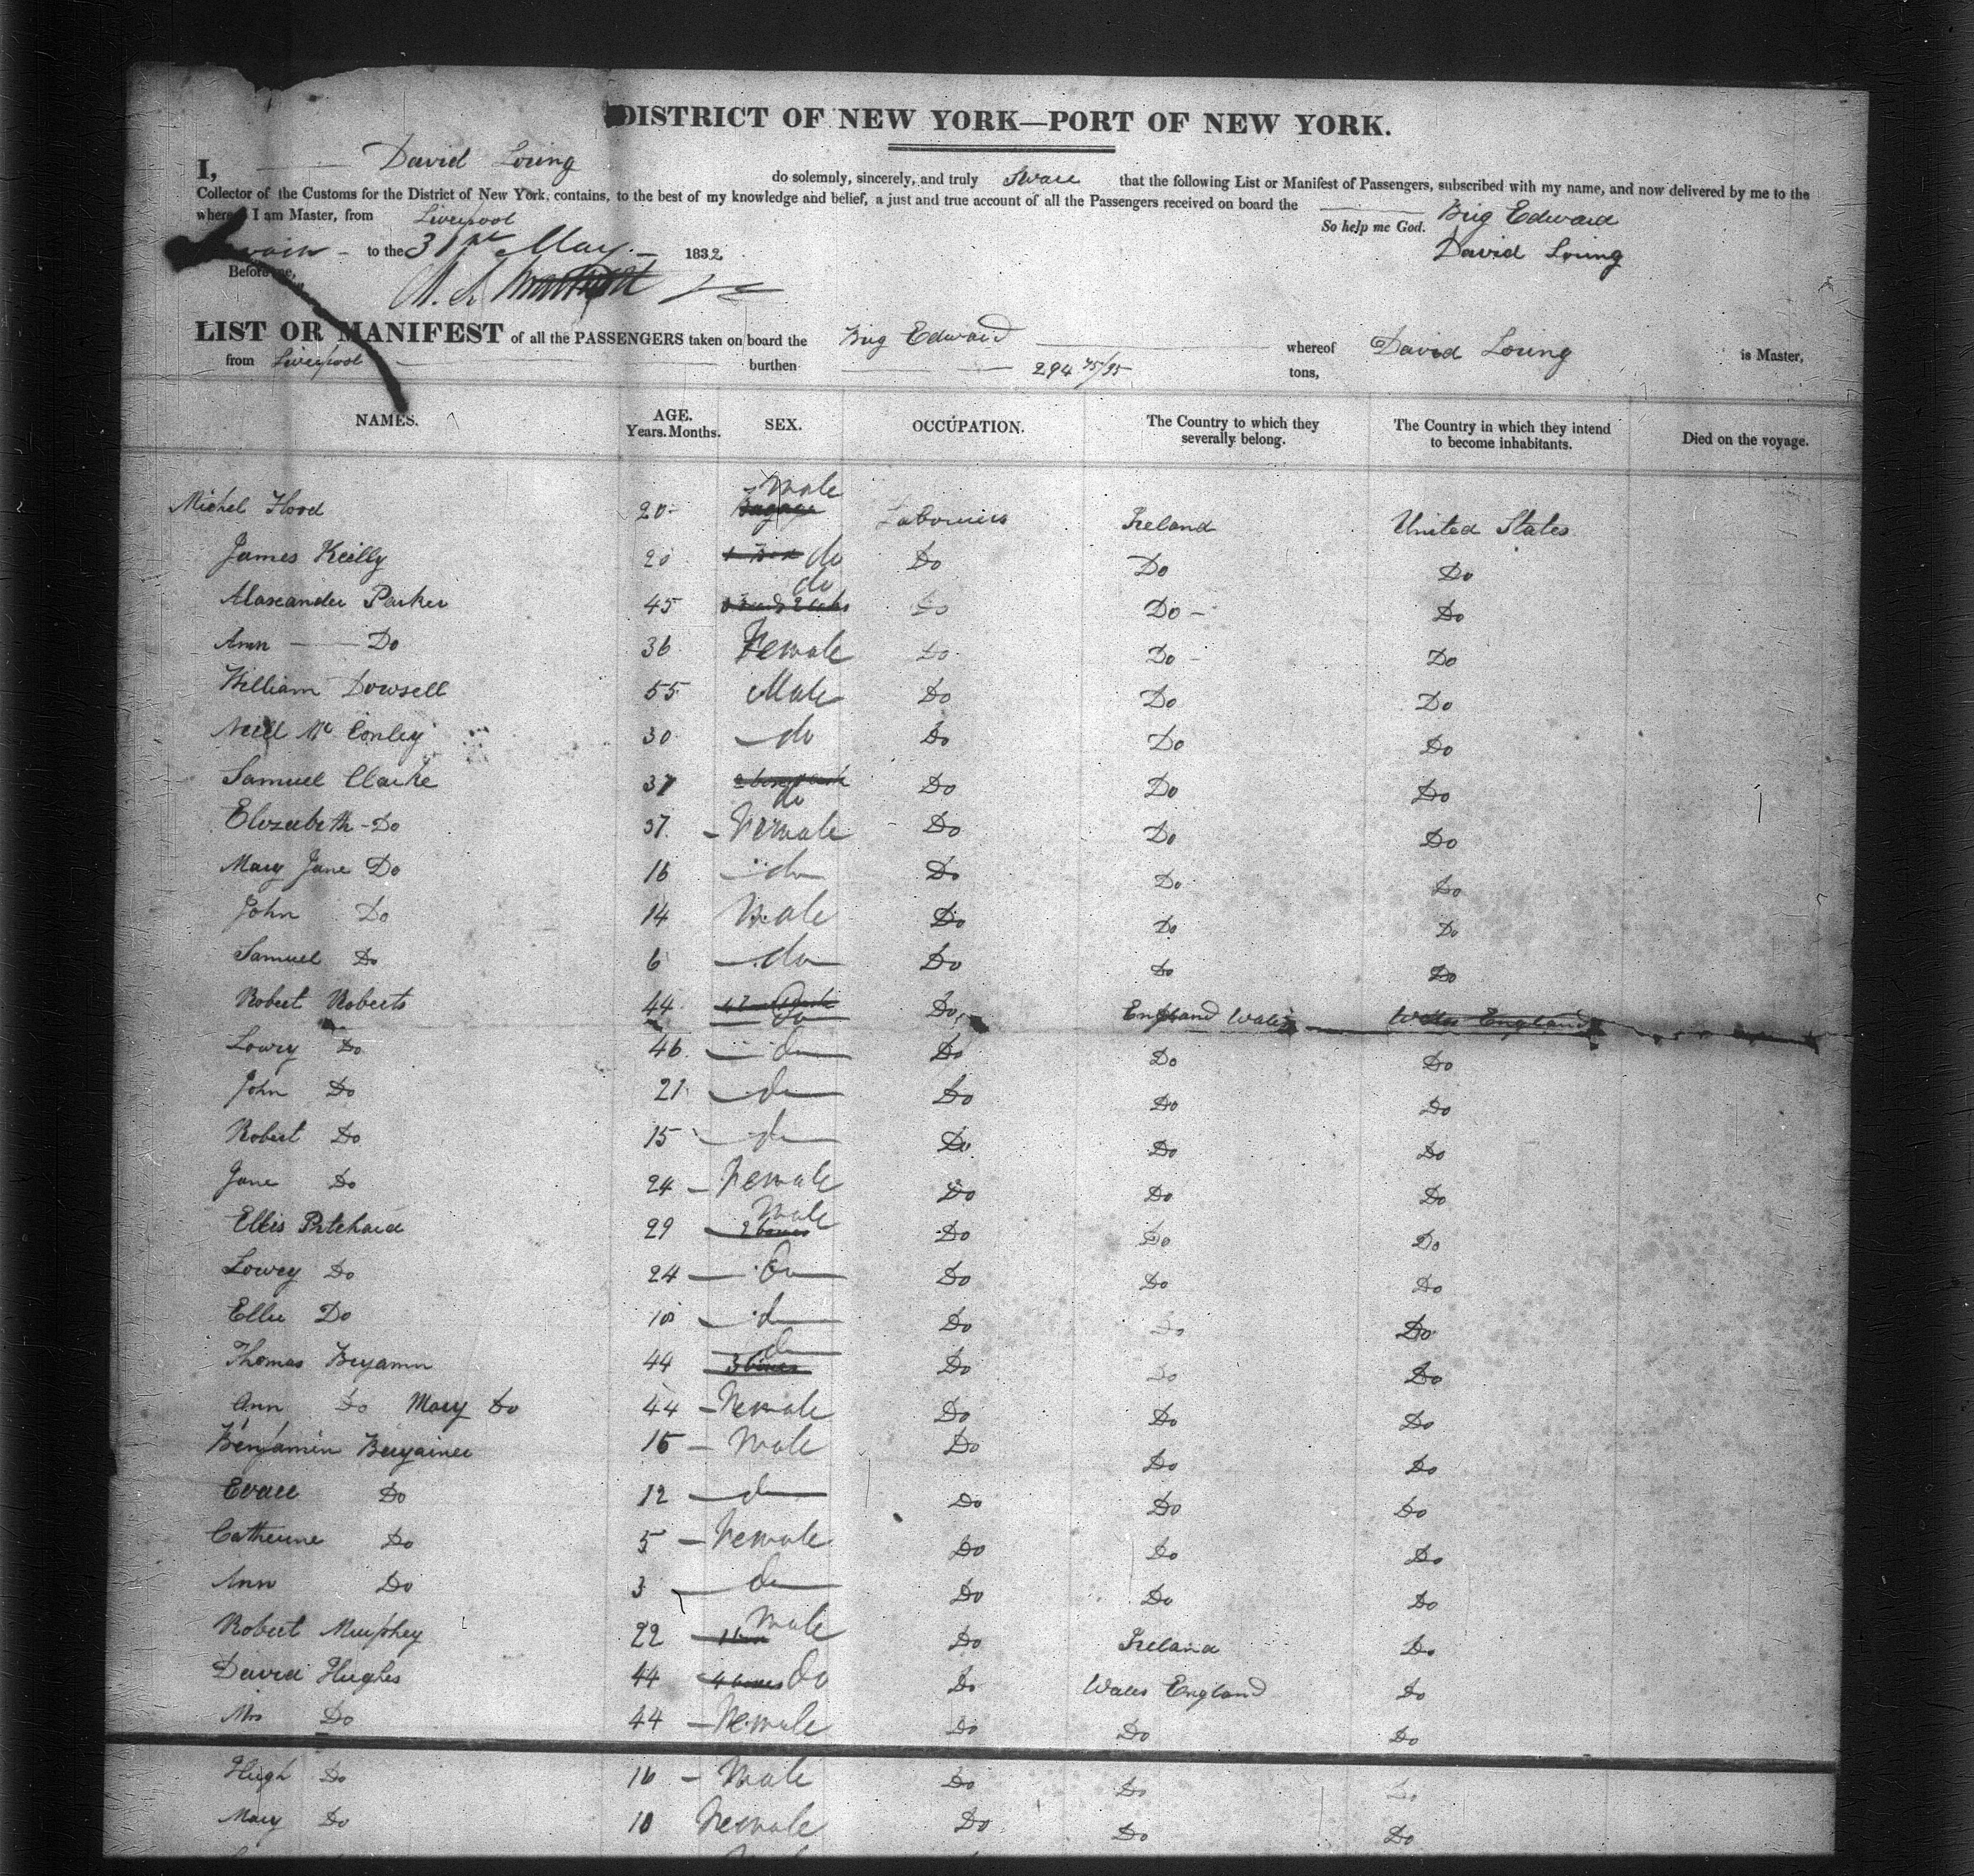 DISTRICT OF NEW YORK—PORT OF NEW YORK.
I, David Loring do solemnly, sincerely, and truly Sware that the following List or Manifest of Passengers, subscribed with my name, and now delivered by me to the
Collector of the Customs for the District of New York, contains, to the best of my knowledge and belief, a just and true account of all the Passengers received on board the Brig Edward
whereof I am Master, from Liverpool So help me God. David Loring
to the 31st May 1832,
Before me,
LIST OR MANIFEST of all the PASSENGERS taken on board the Brig Edward whereof David Loring is Master,
from Liverpool burthen 294 75/95 tons,
NAMES. AGE. Years. Months. SEX. OCCUPATION. The Country to which they severally belong. The Country in which they intend to become inhabitants. Died on the voyage.
Michel Flood 20 Male Labourers Ireland United States
James Reilly 20 do Do Do Do
Alaxander Parker 45 do Do Do Do
Ann Do 36 Female Do Do Do
William Dowsell 55 Male Do Do Do
Neill Mc Conley 30 do Do Do Do
Samuel Clarke 37 do Do Do Do
Elizabeth Do 37 Female Do Do Do
Mary Jane Do 16 do Do Do Do
John Do 14 Male Do Do Do
Samuel Do 6 do Do Do Do
Robert Roberts 44 Do Do England Wales Wales England
Lowry Do 46 do Do Do Do
John Do 21 do Do Do Do
Robert Do 15 do Do Do Do
Jane Do 24 Female Do Do Do
Ellis Pritchard 29 2 boxes Male Do Do Do
Lowry Do 24 Do Do Do Do
Ellie Do 10 do Do Do Do
Thomas 44 3 boxes do Do Do Do
Ann Do Mary Do 44 Female Do Do Do
Benjamin 15 Male Do Do Do
Do 12 do Do Do Do
Catherine Do 5 Female Do Do Do
Ann Do 3 do Do Do Do
Robert Murphey 22 Male Do Ireland Do
David Hughes 44 4 boxes Do Do Wales England Do
Mrs Do 44 Female Do Do Do
Hugh Do 16 Male Do Do Do
Mary Do 10 Female Do Do Do